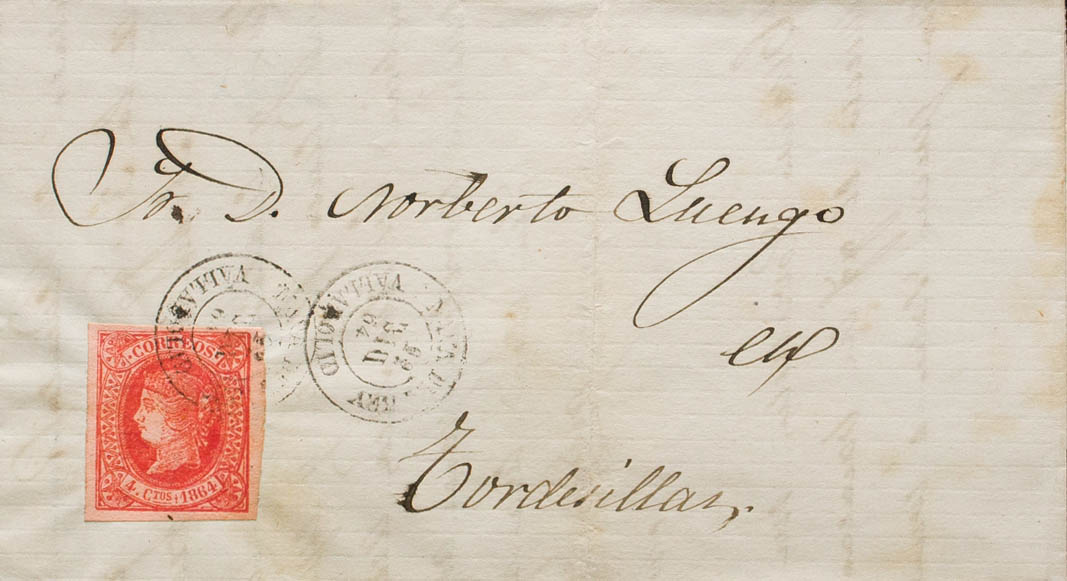 Sr. D. Norberto Luengo
en
Tordesillas,
VALLADOLID
NAVA D REY
DIC
64
VALLADOLID
CORREOS
4. CTOS 1864